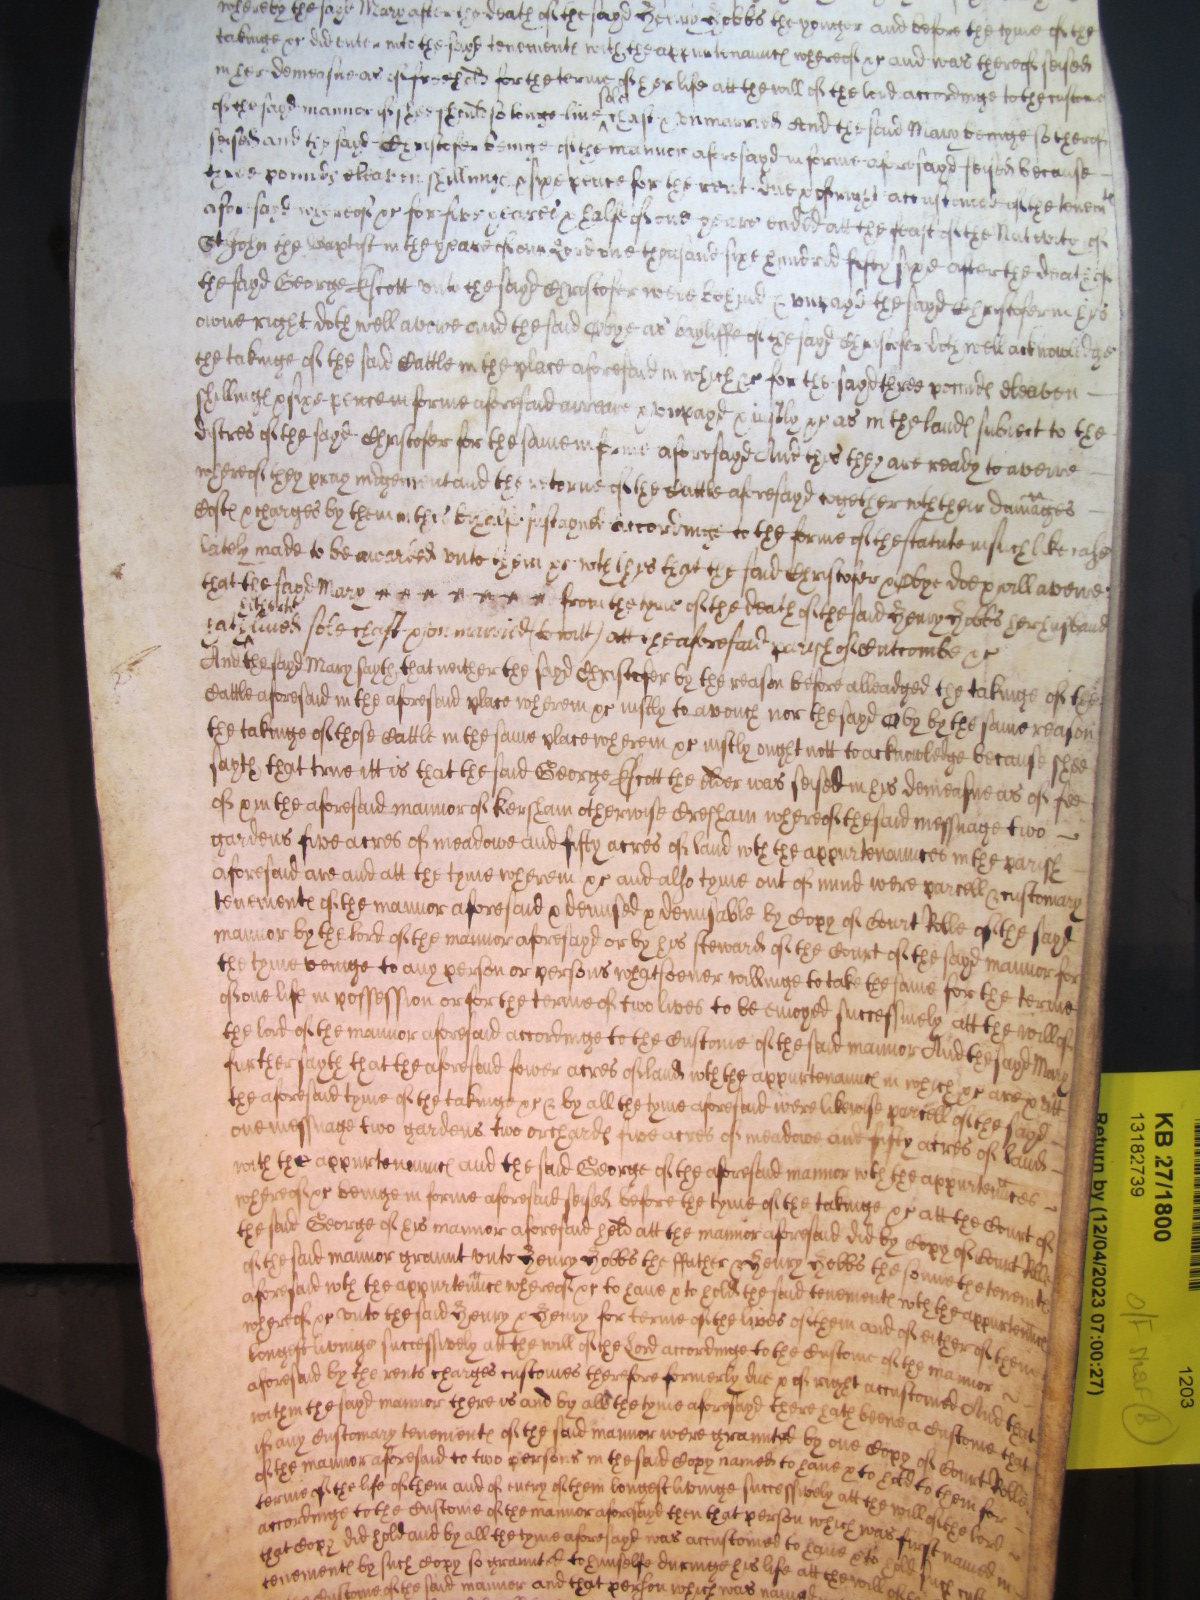 whereby the sayd Mary after the death of the sayd Henry Hobbs the yonger and before the tyme of the
takinge &c did enter into the sayd tenementes with the appurtenaunces whereof &c and was thereof seised
in her demeasne as of freehold for the terme of her life att the will of the lord accordinge to the custome
of the sayd mannor if shee should so longe live sole chast & unmarried And the said Mary beinge so thereof
seised and the sayd Christofer beinge of the mannor aforesayd in forme aforesayd seised because
three pounds eleaven shillinges & sixe pence for the rent due & of right accustomed of the tenemtes
aforesayd whereof &c for five yeares & halfe of one yeare ended att the feast of the Nativity of
St John the Baptist in the yeare of our Lord one thousand sixe hundred fifty sixe after the death of
the sayd George Escott unto the sayd Christofer were behind & unpayd the sayd Christofer in his
owne right doth well avowe and the said Obye as bayliffe of the sayd Christofer doth well acknowledge
the takinge of the said Cattle in the place aforesaid in which &c for the sayd three pounds eleaven
shillinges & sixe pence in forme aforesaid arreare & unpayd & iustly &c as in the landes subiect to the
distres of the sayd Christofer for the same in forme aforesayd And this they are ready to averre
whereof they pray iudgement and the retorne of the Cattle aforesayd together wth their damages
Costes & charges by them in this behalfe sustayned accordinge to the forme of the statute in such like case
lately made to be awarded unto them &c with this that the said Christofer & Obye doe & will averre
that the sayd Mary from the tyme of the death of the said Henry Hobbs her husband
hath lived sole chast & unmarried (towitt) att the aforesaid parish of Cutcombe &c
And the sayd Mary sayth that neither the sayd Christofer by the reason before alleadged the takinge of the
Cattle aforesaid in the aforesaid place wherein &c iustly to avouch nor the sayd Oby by the same reason
the takinge of those Cattle in the same place wherein &c iustly ought nott to acknowledge because shee
sayth that true itt is that the said George Escott the elder was seised in his demeasne as of fee
of & in the aforesaid mannor of Kersham otherwise Cresham whereof the said messuage two
gardens five acres of meadowe and fifty acres of land wth the appurtenaunces in the parish
aforesaid are and att the tyme wherein &c and also tyme out of mind were parcell & customary
tenementes of the mannor aforesaid & demised & demisable by Copy of Court Rolle of the sayd
mannor by the lord of the mannor aforesayd or by his steward of the Court of the sayd mannor for
the tyme beinge to any person or persons whatsoever willinge to take the same for the terme
of one life in possession or for the terme of two lives to be enioyed successively att the will of
the lord of the mannor aforesaid accordinge to the Custome of the said mannor And the sayd Mary
further sayth that the aforesaid fower acres of land wth the appurtenaunces in which &c are & att
the aforesaid tyme of the takinge &c & by all the tyme aforesaid were likewise parcell of the sayd
one messuage two gardens two orchards five acres of meadowe and fifty acres of land
with the appurtenaunces and the said George of the aforesaid mannor wth the appurtenaces
whereof &c beinge in forme aforesaid seised before the tyme of the takinge &c att the Court of
the said George of his mannor aforesaid held att the mannor aforesaid did by Copy of Court Rolle
of the said mannor graunt unto Henry Hobbs the ffather & Henry Hobbs the sonne the tenementes
aforesaid wth the appurtenaunces whereof &c to have & to hold the said tenementes wth the appurtenaunces
whereof &c unto the said Henry & Henry for terme of the lives of them and of either of them
longest livinge successively att the will of the Lord accordinge to the Custome of the mannor
aforesaid by the rents charges customes therefore formerly due & of right accustomed And that
within the sayd mannor there is and by all the tyme aforesayd there hath beene a Custome that
if any Customary tenementes of the said mannor were graunted by one Copy of Court Rolle
of the mannor aforesaid to two persons in the said Copy named to have & to hold to them for
terme of the life of them and of every of them longest livinge successively att the will of the lord
accordinge to the Custome of the mannor aforesayd then that person which was first named in
that Copy did hold and by all the tyme aforesayd was accustomed to have & to hold such
tenementes by such Copy so graunted to himselfe duringe his life att the will of
Custome of the said mannor and that person which was named
KB 27/1800
13182739
Return by (12/04/2023 07:00:27)
1203